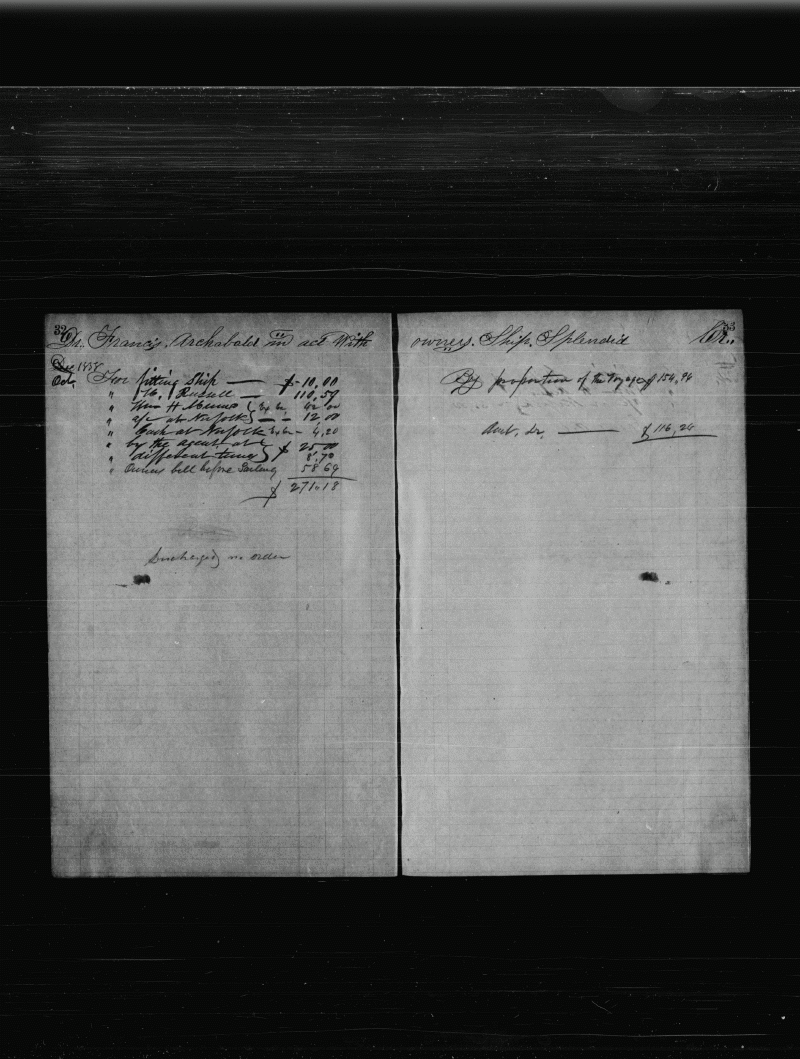 32
Dr. Francis Archabald in act With
Oct. For fitting Ship — $ 10,00
" Russell — 110,59
" Wm H
" at Norfolk — 12 00
" Cash at Norfolk — 4,20
" by the agent at
" different times $ 25 00
8,70
" Owners bill before Sailing 58 69
$ 271,18
Discharged no order
33
owners Ship Splendid Cr.
By proportion of the Voyage $ 154,94
Amt. Dr. — $ 116,24